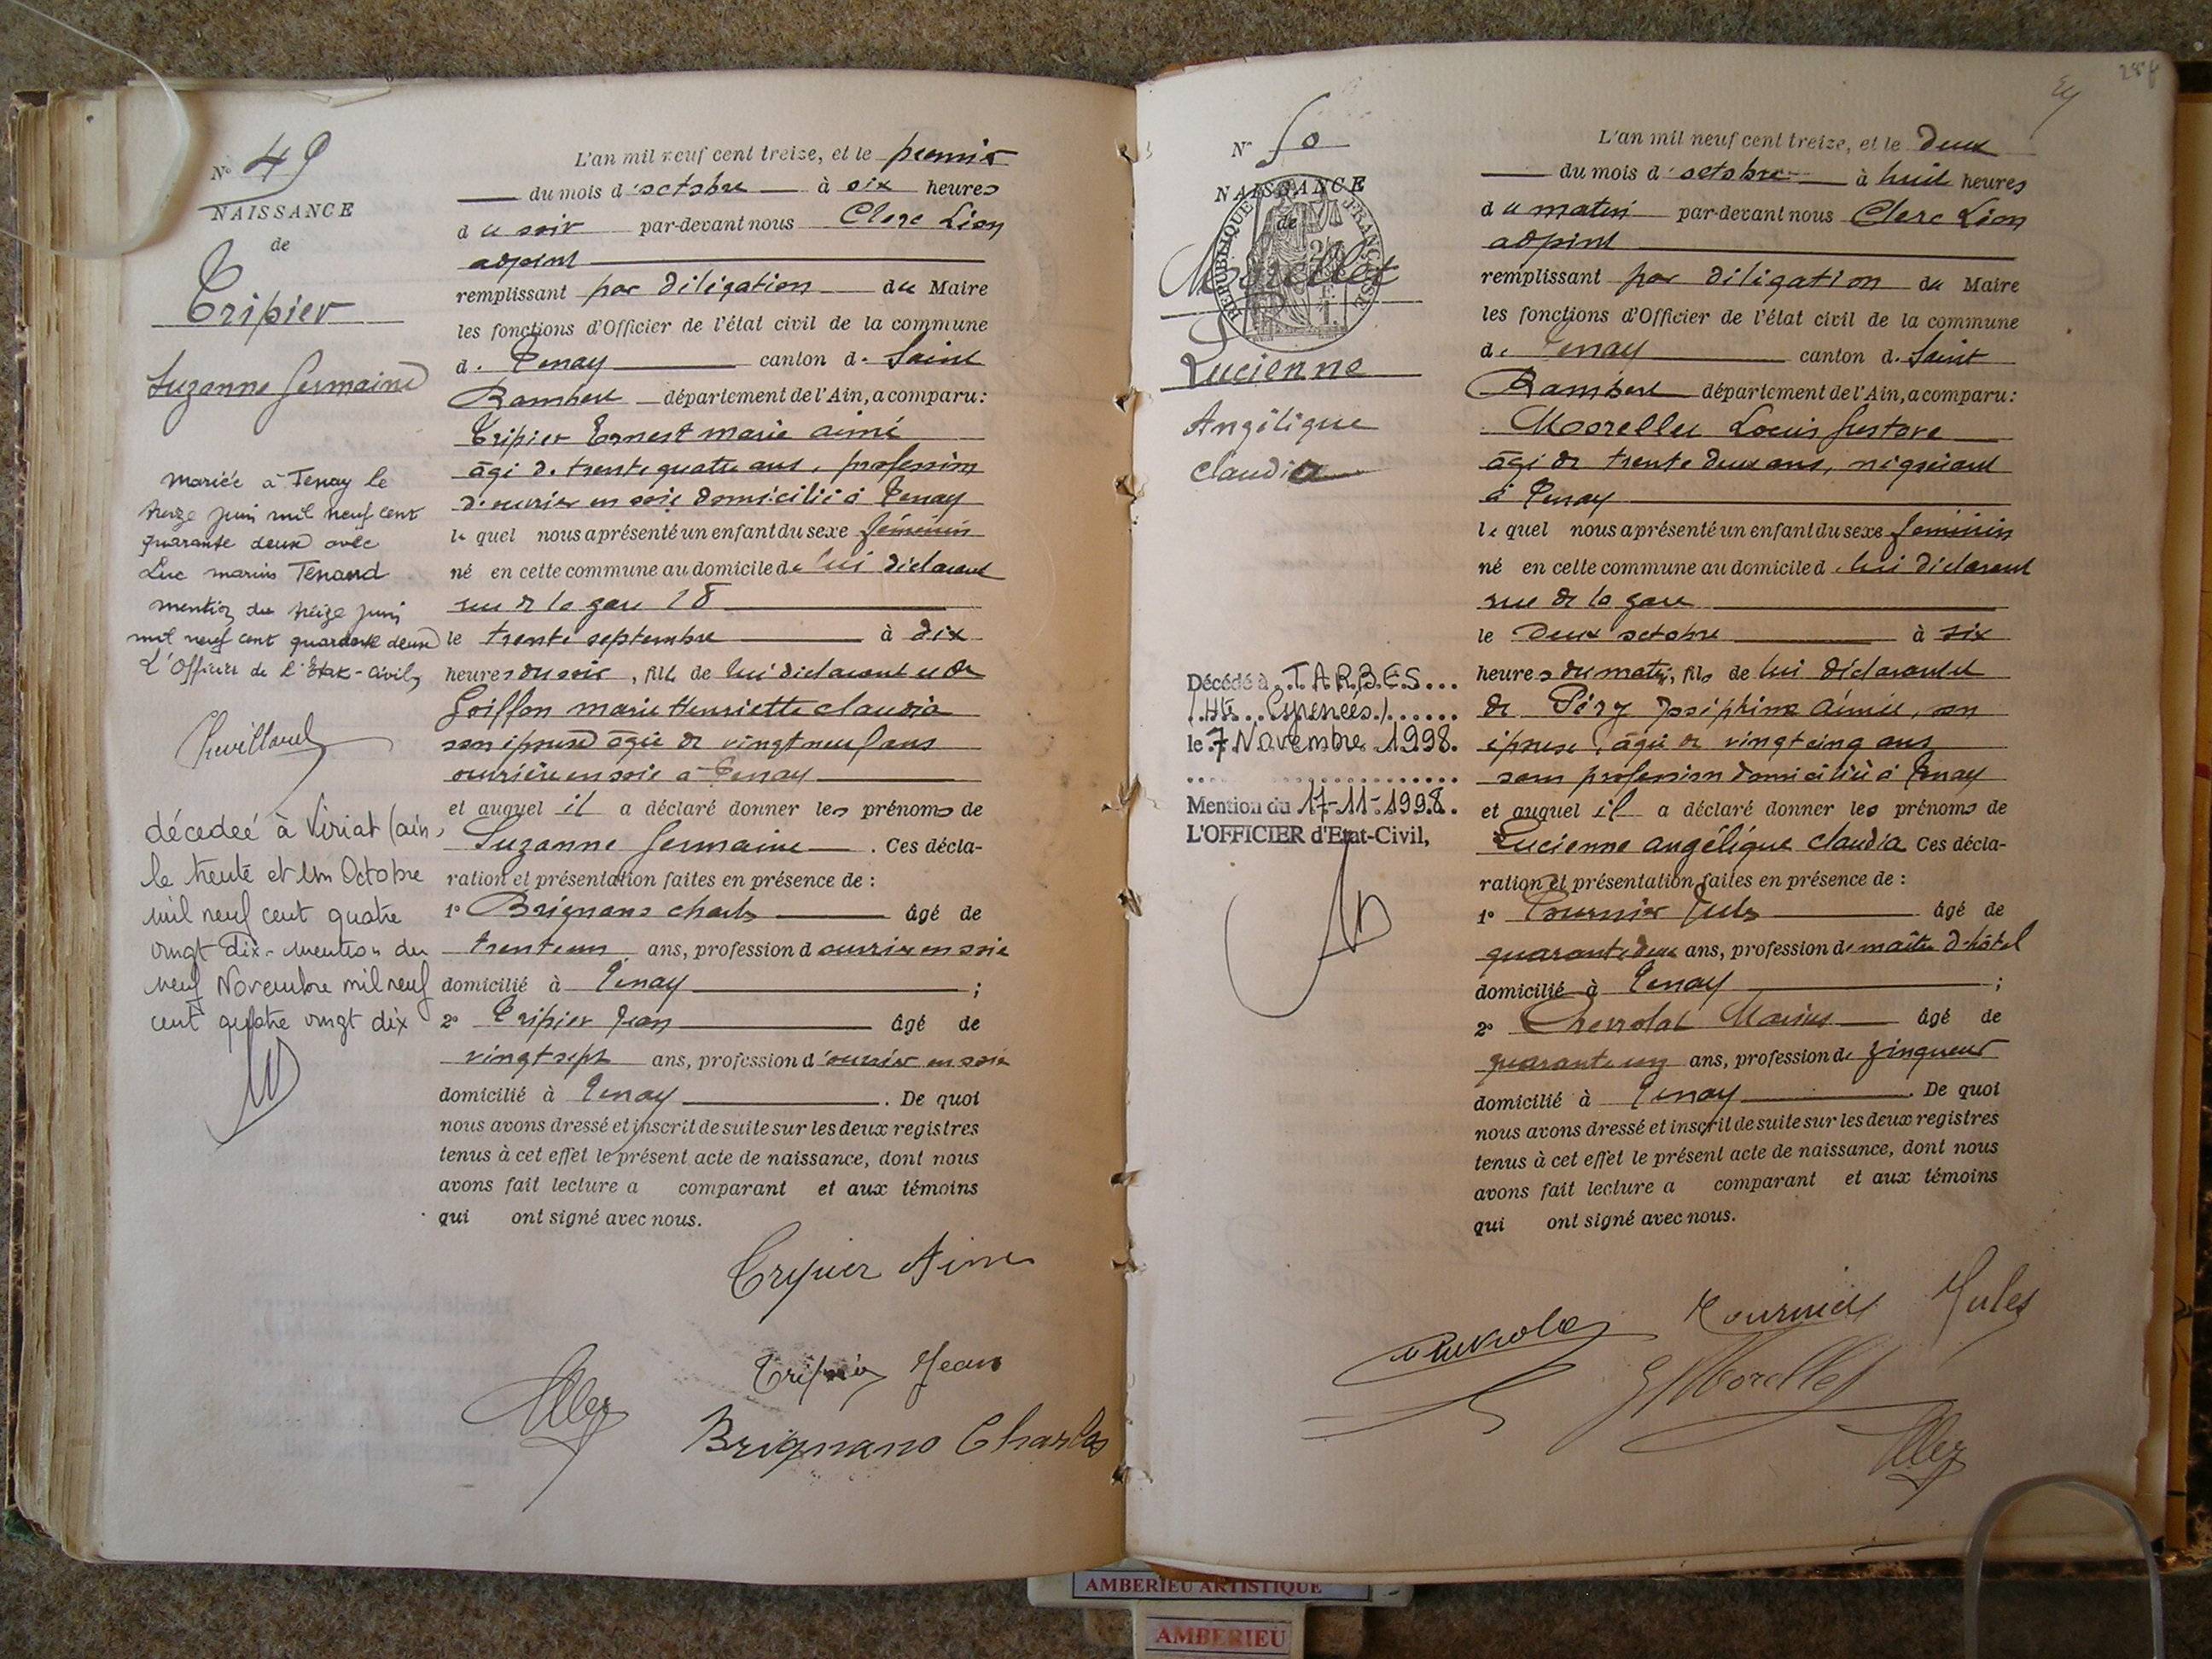 N° 49
NAISSANCE
de
Tripier
Suzanne Germaine
mariée à Tenay le
treize juin mil neuf cent
quarante deux avec
Luc marius Tenand
mention du treize juin
mil neuf cent quarante deux
L'Officier de l'Etat-Civil,
décedeé à Viriat (ain)
le trente et un Octobre
mil neuf cent quatre
vingt dix - mention du
neuf Novembre mil neuf
cent quatre vingt dix
L'an mil neuf cent treize, et le premier
du mois d'octobre à six heures
du soir par-devant nous Clerc Léon
adjoint
remplissant par délégation du Maire
les fonctions d'Officier de l'état civil de la commune
de Tenay canton de Saint
Rambert département de l'Ain, a comparu:
Tripier Ernest marie aimé
âgé de trente quatre ans, profession
d'ouvrier en soie domicilié à Tenay
lequel nous a présenté un enfant du sexe féminin
né en cette commune au domicile de lui déclarant
rue de la gare 18
le trente septembre à dix
heures du soir, fille de lui déclarant et de
Goiffon marie Henriette claudia
son épouse âgée de vingt neuf ans
ouvrière en soie à Tenay
et auquel il a déclaré donner les prénoms de
Suzanne Germaine. Ces décla-
ration et présentation faites en présence de :
1° Brignano charles âgé de
trente un ans, profession d'ouvrier en soie
domicilié à Tenay ;
2° Tripier Jean âgé de
vingt sept ans, profession d'ouvrier en soie
domicilié à Tenay. De quoi
nous avons dressé et inscrit de suite sur les deux registres
tenus à cet effet le présent acte de naissance, dont nous
avons fait lecture a comparant et aux témoins
qui ont signé avec nous.
Tripier Aimé
Tripier Jean
Brignano Charles
N° 50
NAISSANCE
de
REPUBLIQUE FRANÇAISE
Morellet
Lucienne
Angélique
Claudia
Décédé à TARBES
(Htes Pyrénées)
le 7 Novembre 1998.
Mention du 17-11-1998.
L'OFFICIER d'Etat-Civil,
L'an mil neuf cent treize, et le deux
du mois d'octobre à huit heures
du matin par-devant nous Clerc Léon
adjoint
remplissant par délégation du Maire
les fonctions d'Officier de l'état civil de la commune
de Tenay canton de Saint
Rambert département de l'Ain, a comparu:
Morellet Louis Gustave
âgé de trente deux ans, négociant
à Tenay
lequel nous a présenté un enfant du sexe féminin
né en cette commune au domicile de lui déclarant
rue de la gare
le deux octobre à six
heures du matin, fils de lui déclarant et
de Péry Joséphine Aimée, son
épouse, âgée de vingt cinq ans
sans profession domiciliée à Tenay
et auquel il a déclaré donner les prénoms de
Lucienne angélique claudia Ces décla-
ration et présentation faites en présence de :
1° Tournier Jules âgé de
quarante deux ans, profession de maître d'hôtel
domicilié à Tenay ;
2° Chevrolat Marius âgé de
quarante un ans, profession de zingueur
domicilié à Tenay. De quoi
nous avons dressé et inscrit de suite sur les deux registres
tenus à cet effet le présent acte de naissance, dont nous
avons fait lecture a comparant et aux témoins
qui ont signé avec nous.
Tournier Jules
G Morellet
AMBERIEU ARTISTIQUE
AMBERIEU